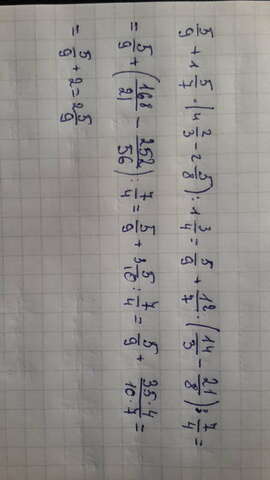 5/9 + 1 5/7 · (4 2/3 − 2 5/8) : 1 3/4 = 5/9 + 12/7 · (14/3 − 21/8) : 7/4 =
= 5/9 + (168/21 − 252/56) : 7/4 = 5/9 + 35/10 : 7/4 = 5/9 + 35·4/10·7 =
= 5/9 + 2 = 2 5/9